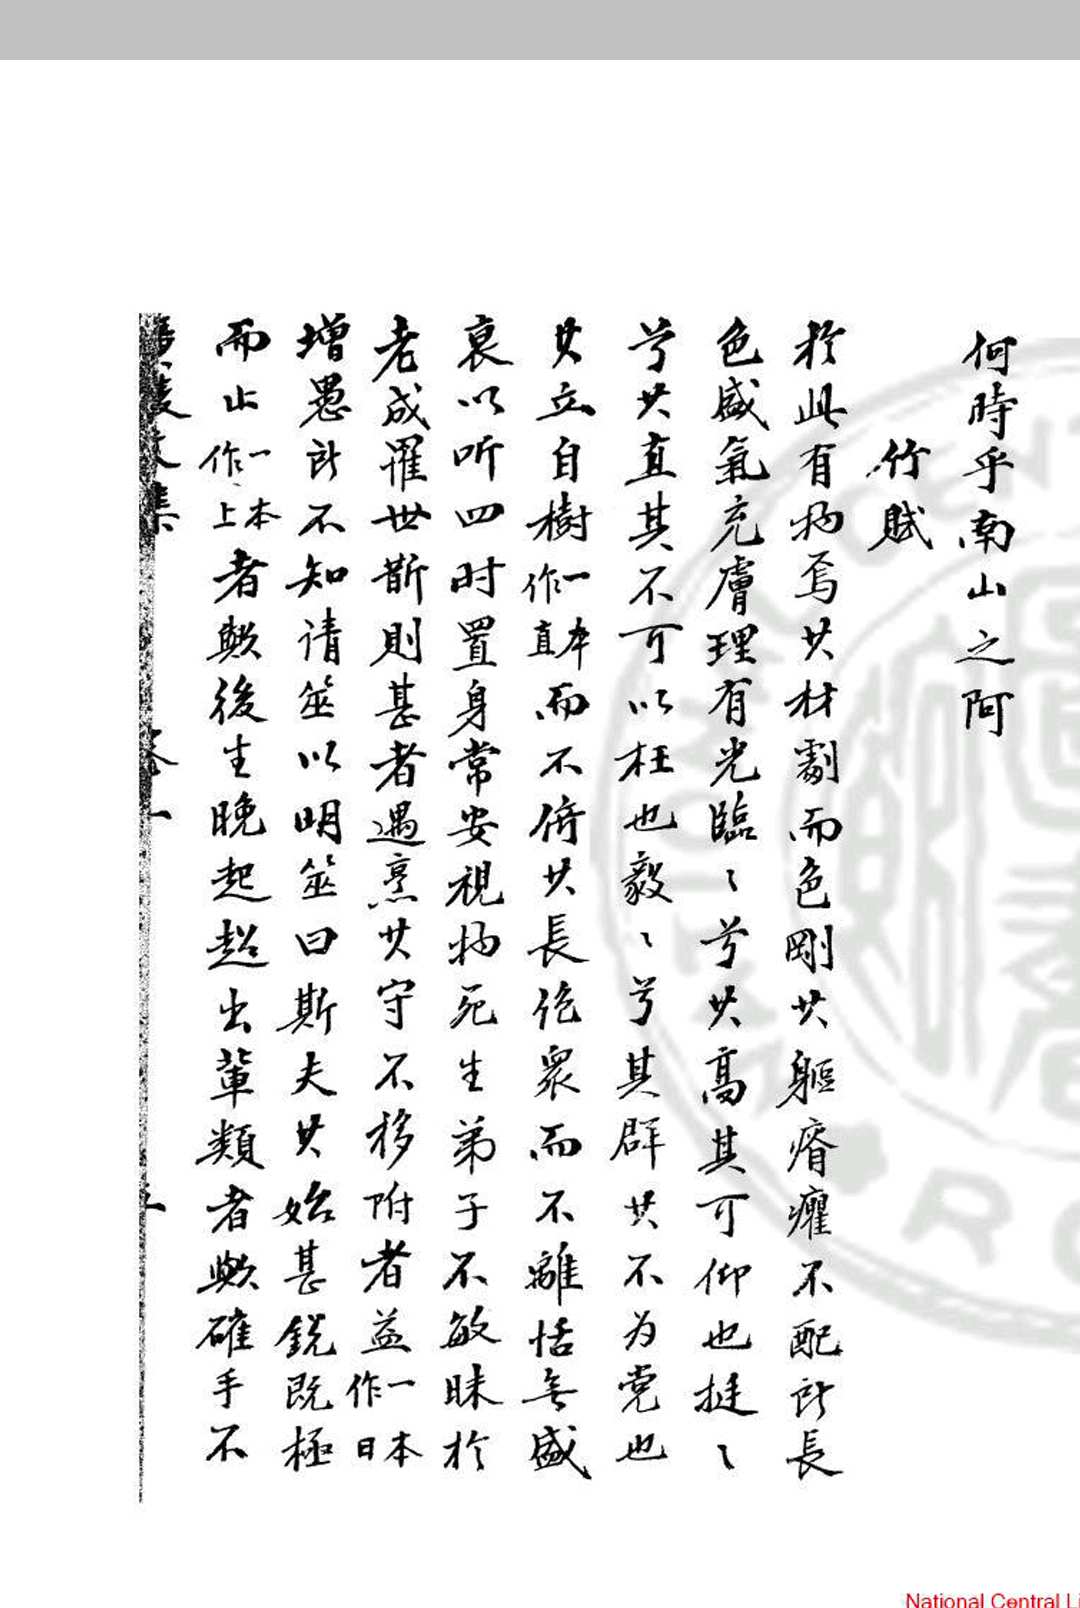 何時乎南山之阿
竹賦
於此有物焉其材劌而色剛其軀瘠癯不配所長
色盛氣充膚理有光臨〻兮其高其可仰也挺〻
兮其直其不可以枉也毅〻兮其群其不为党也
其立自樹一本作直而不倚其長绝衆而不離恬無盛
衰以听四时置身常安視物死生弟子不敏昧於
老成罹世斯則甚者遇烹其守不移附者益一本作日
增愚所不知请筮以明筮曰斯夫其始甚鋭既極
而止一本作上者歟後生晚起超出軰類者歟確乎不
集
卷一
五
National Central Li